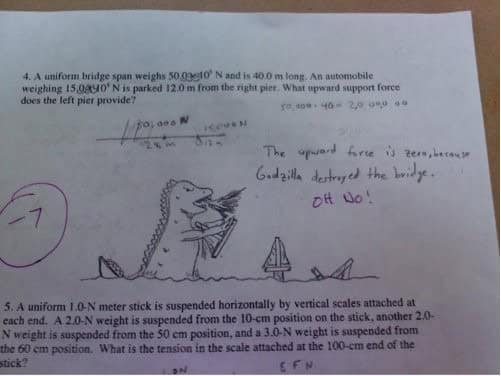 4. A uniform bridge span weighs 50.0 10³ N and is 40.0 m long. An automobile
weighing 15.0 10³ N is parked 12.0 m from the right pier. What upward support force
does the left pier provide?
50,000 · 40 = 2,000,000
50,000 N
15000 N
28 m
12 m
The upward force is zero, because
Godzilla destroyed the bridge.
OH NO!
-7
5. A uniform 1.0-N meter stick is suspended horizontally by vertical scales attached at
each end. A 2.0-N weight is suspended from the 10-cm position on the stick, another 2.0-
N weight is suspended from the 50 cm position, and a 3.0-N weight is suspended from
the 60 cm position. What is the tension in the scale attached at the 100-cm end of the
stick?